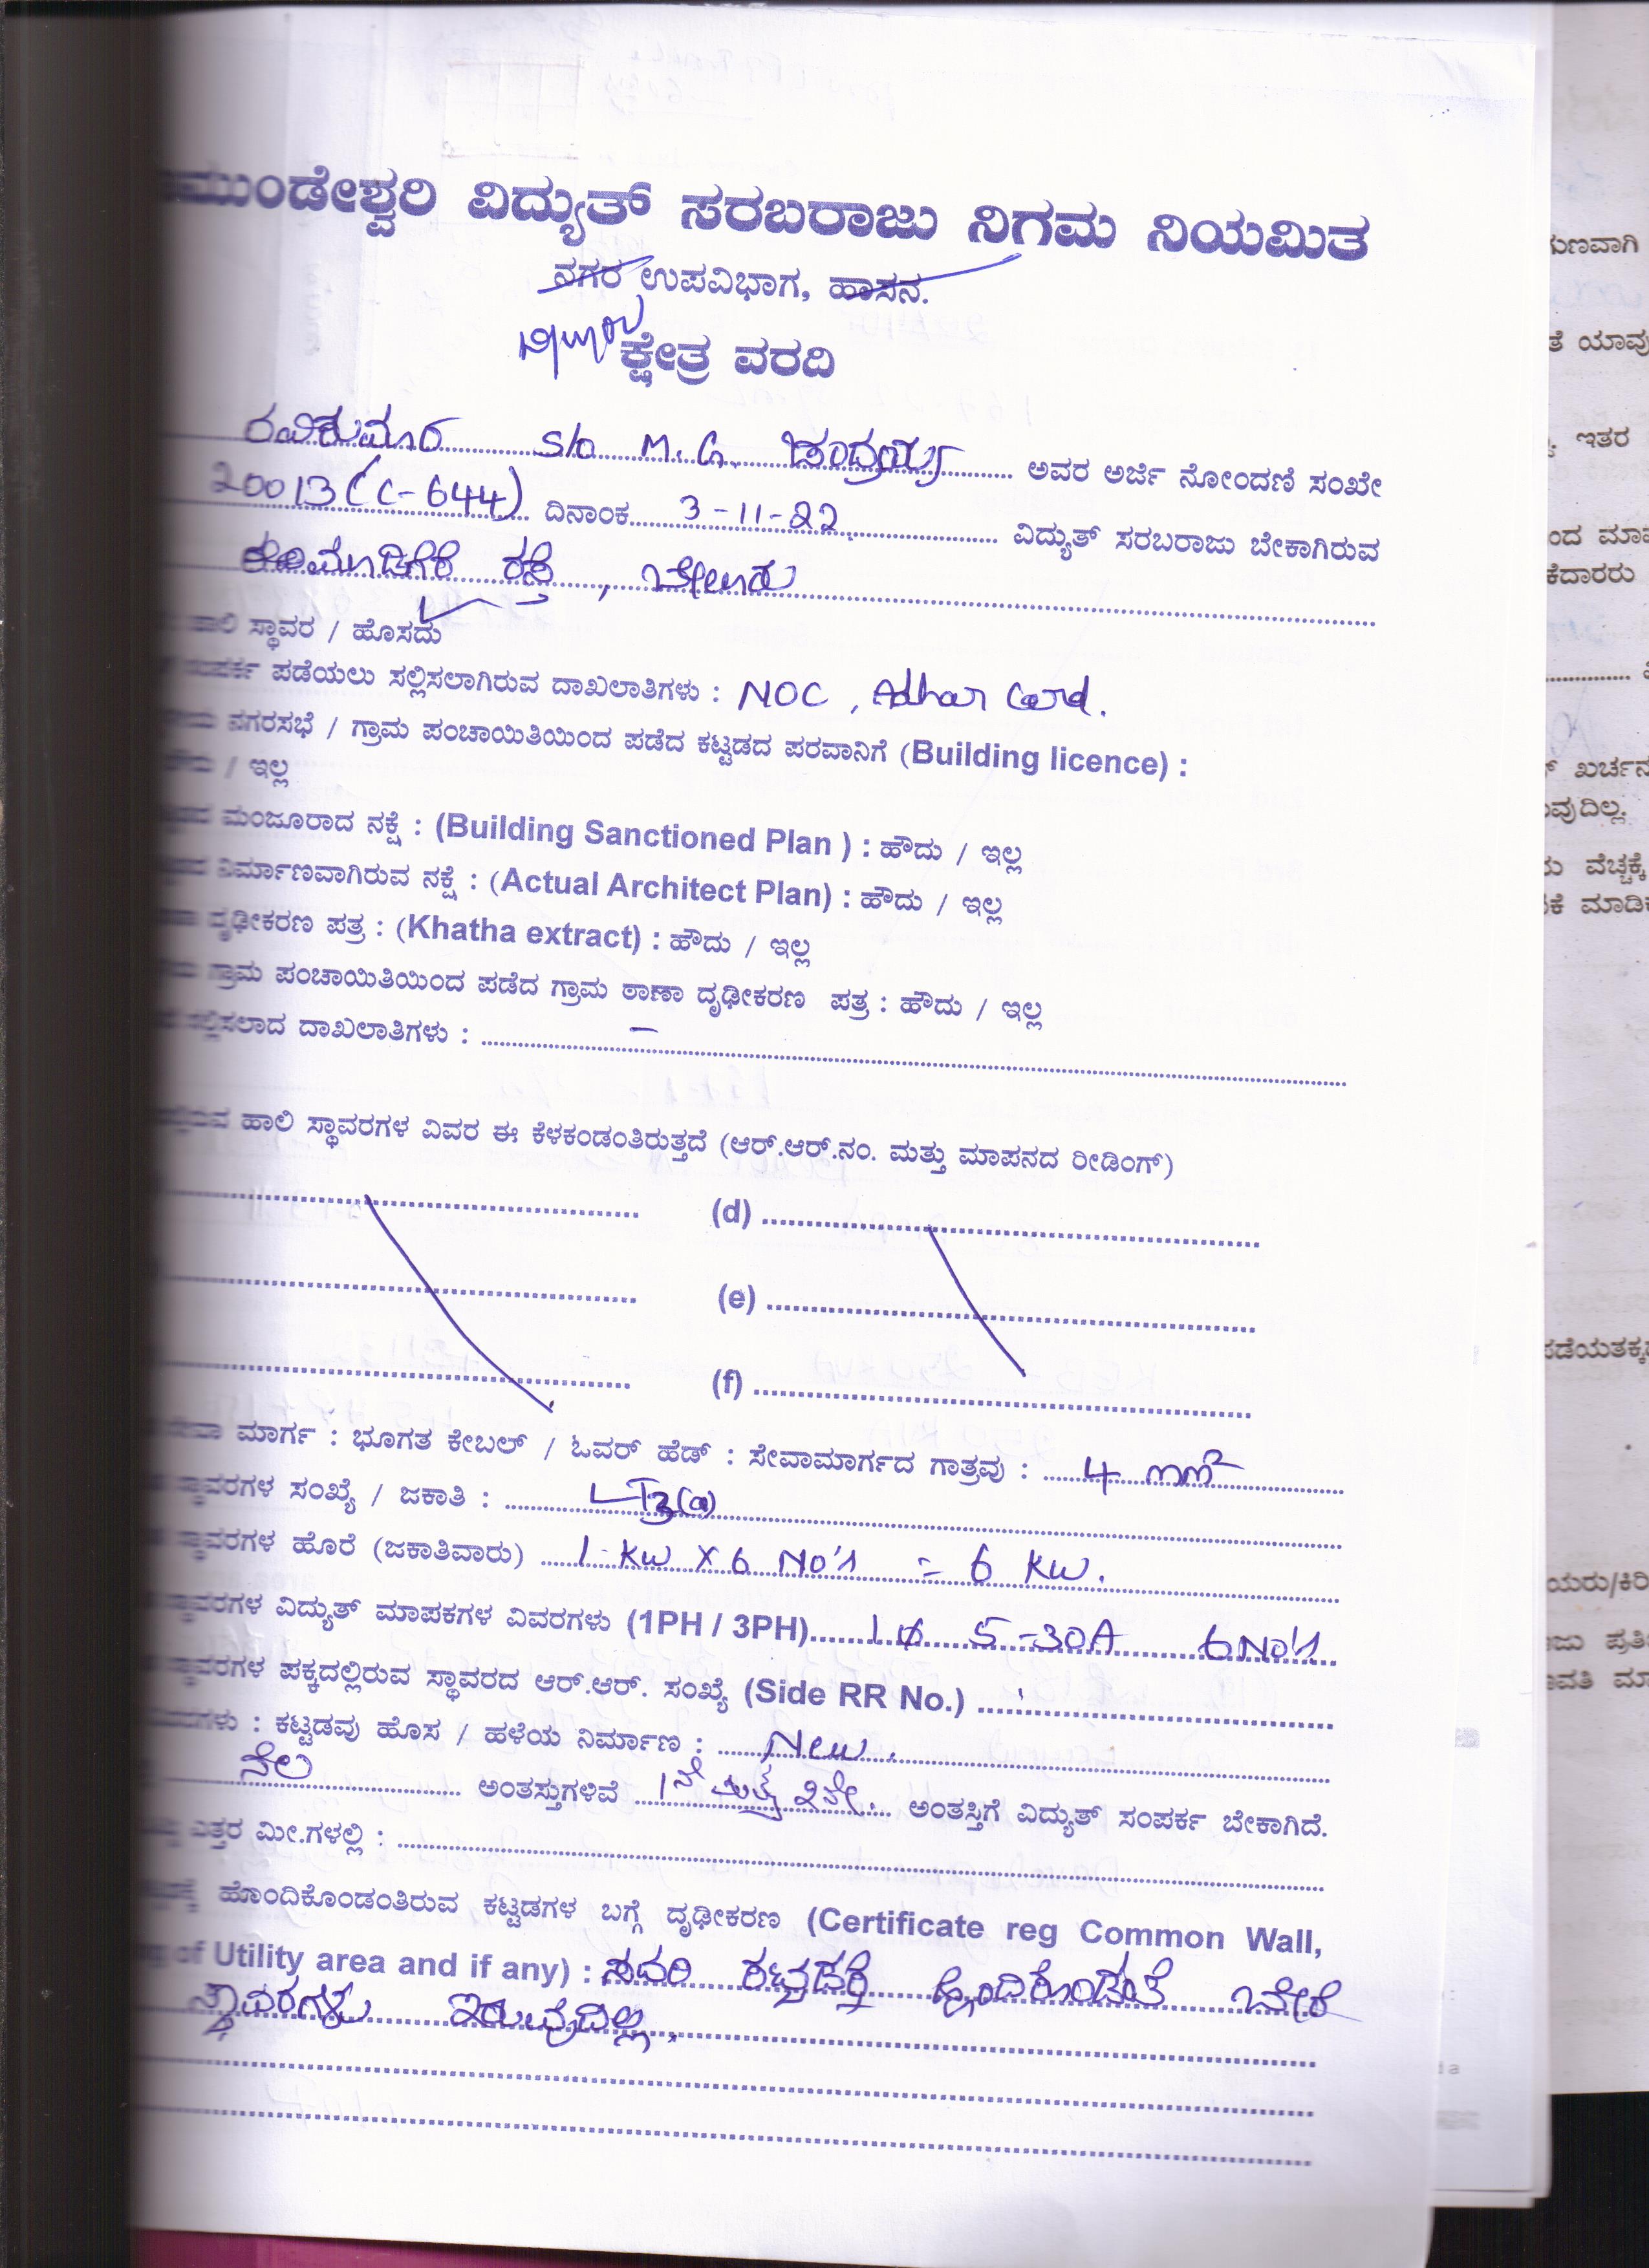 ಮುಂಡೇಶ್ವರಿ ವಿದ್ಯುತ್ ಸರಬರಾಜು ನಿಗಮ ನಿಯಮಿತ
ನಗರ ಉಪವಿಭಾಗ, ಹಾಸನ.
ಕ್ಷೇತ್ರ ವರದಿ
ರವಿಕುಮಾರ S/o M.G. ಚಂದ್ರಯ್ಯ ಅವರ ಅರ್ಜಿ ನೋಂದಣಿ ಸಂಖೇ
20013 (C-644) ದಿನಾಂಕ 3-11-22 ವಿದ್ಯುತ್ ಸರಬರಾಜು ಬೇಕಾಗಿರುವ
ರಸ್ತೆ , ಬೇಲೂರು
ಹಾಲಿ ಸ್ಥಾವರ / ಹೊಸದು
ಸಂಪರ್ಕ ಪಡೆಯಲು ಸಲ್ಲಿಸಲಾಗಿರುವ ದಾಖಲಾತಿಗಳು : NOC , Adhar Card.
ನಗರಸಭೆ / ಗ್ರಾಮ ಪಂಚಾಯಿತಿಯಿಂದ ಪಡೆದ ಕಟ್ಟಡದ ಪರವಾನಿಗೆ (Building licence) :
/ ಇಲ್ಲ
ಮಂಜೂರಾದ ನಕ್ಷೆ : (Building Sanctioned Plan ) : ಹೌದು / ಇಲ್ಲ
ನಿರ್ಮಾಣವಾಗಿರುವ ನಕ್ಷೆ : (Actual Architect Plan) : ಹೌದು / ಇಲ್ಲ
ದೃಢೀಕರಣ ಪತ್ರ : (Khatha extract) : ಹೌದು / ಇಲ್ಲ
ಗ್ರಾಮ ಪಂಚಾಯಿತಿಯಿಂದ ಪಡೆದ ಗ್ರಾಮ ಠಾಣಾ ದೃಢೀಕರಣ ಪತ್ರ : ಹೌದು / ಇಲ್ಲ
ಸಲ್ಲಿಸಲಾದ ದಾಖಲಾತಿಗಳು : –
ಹಾಲಿ ಸ್ಥಾವರಗಳ ವಿವರ ಈ ಕೆಳಕಂಡಂತಿರುತ್ತದೆ (ಆರ್.ಆರ್.ನಂ. ಮತ್ತು ಮಾಪನದ ರೀಡಿಂಗ್)
(d)
(e)
(f)
ಮಾರ್ಗ : ಭೂಗತ ಕೇಬಲ್ / ಓವರ್ ಹೆಡ್ : ಸೇವಾಮಾರ್ಗದ ಗಾತ್ರವು : 4 mm²
ಸ್ಥಾವರಗಳ ಸಂಖ್ಯೆ / ಜಕಾತಿ : LT3(a)
ಸ್ಥಾವರಗಳ ಹೊರೆ (ಜಕಾತಿವಾರು) 1 KW X 6 No's = 6 KW.
ಸ್ಥಾವರಗಳ ವಿದ್ಯುತ್ ಮಾಪಕಗಳ ವಿವರಗಳು (1PH / 3PH) 1ϕ 5-30A 6 No's
ಸ್ಥಾವರಗಳ ಪಕ್ಕದಲ್ಲಿರುವ ಸ್ಥಾವರದ ಆರ್.ಆರ್. ಸಂಖ್ಯೆ (Side RR No.)
: ಕಟ್ಟಡವು ಹೊಸ / ಹಳೆಯ ನಿರ್ಮಾಣ : New.
ನೆಲ ಅಂತಸ್ತುಗಳಿವೆ 1ನೇ ಮತ್ತು 2ನೇ. ಅಂತಸ್ತಿಗೆ ವಿದ್ಯುತ್ ಸಂಪರ್ಕ ಬೇಕಾಗಿದೆ.
ಎತ್ತರ ಮೀ.ಗಳಲ್ಲಿ :
ಹೊಂದಿಕೊಂಡಂತಿರುವ ಕಟ್ಟಡಗಳ ಬಗ್ಗೆ ದೃಢೀಕರಣ (Certificate reg Common Wall,
of Utility area and if any) : ಸದರಿ ಕಟ್ಟಡಕ್ಕೆ ಹೊಂದಿಕೊಂಡಂತೆ ಬೇರೆ
ಸ್ಥಾವರಗಳು ಇರುವುದಿಲ್ಲ.